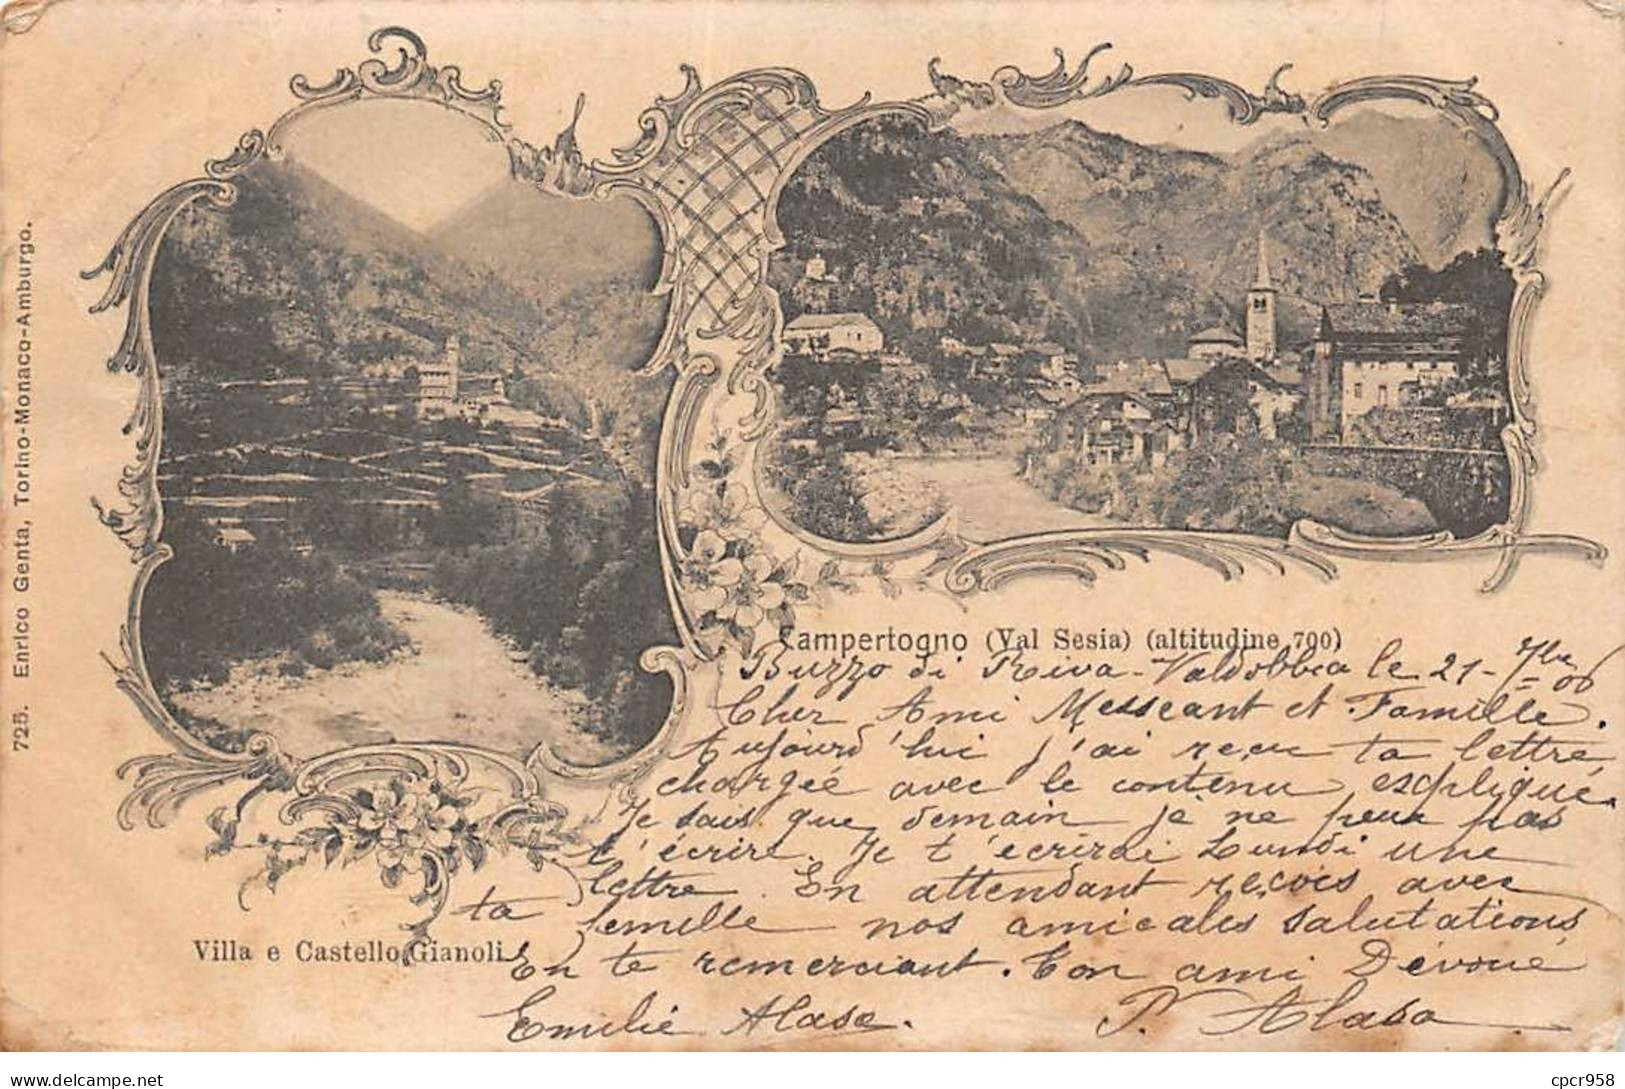 725. Enrico Genta, Torino-Monaco-Amburgo.
Campertogno (Val Sesia) (altitudine 700)
Villa e Castello Gianoli
Buzzo di Riva-Valdobbia le 21- 7bre 06
Cher Ami Messeant et Famille.
Aujourd'hui j'ai reçu ta lettre
chargée avec le contenu expliqué.
Je sais que demain je ne peux pas
t'écrire. Je t'écrirai Lundi une
lettre. En attendant reçois avec
ta femille nos amicales salutations
En te remerciant. Ton ami Dévoué
Emilie Alasa. P. Alasa
cpcr958